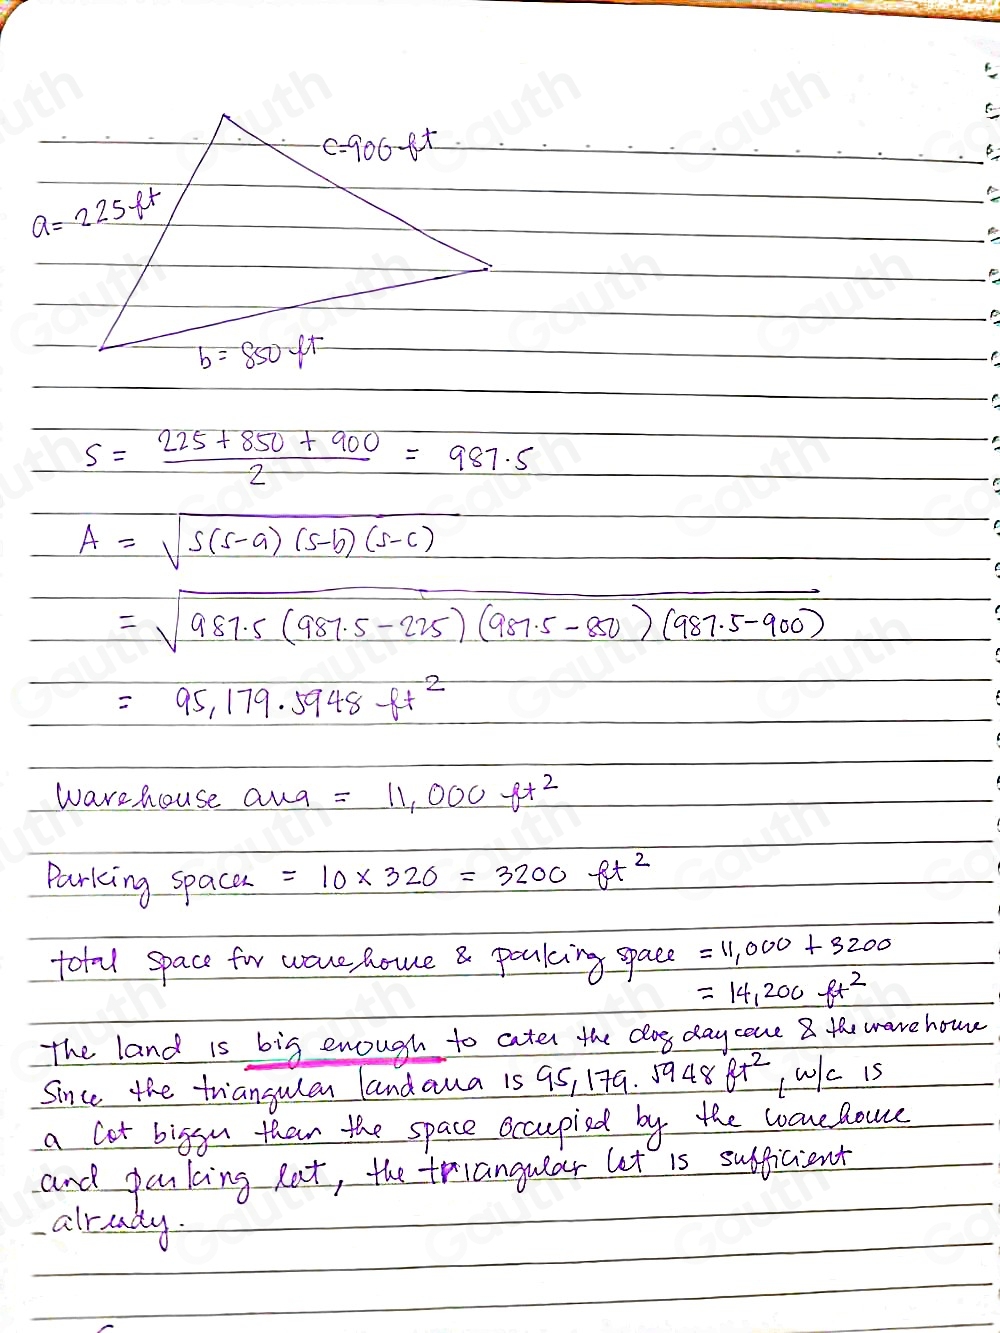 c=900 ft
a= 225 ft
b= 850 ft
S = 225 + 850 + 900 / 2 = 987.5
A = √s(s-a) (s-b) (s-c)
= √987.5 (987.5 - 225) (987.5 - 850) (987.5 - 900)
= 95,179.5948 ft²
Warehouse area = 11,000 ft²
Parking spaces = 10 x 320 = 3200 ft²
total space for warehouse & parking space = 11,000 + 3200
= 14,200 ft²
The land is big enough to cater the dog daycare & the warehouse
Since the triangular land area is 95,179.5948 ft², w/c is
a lot bigger than the space occupied by the warehouse
and parking lot, the triangular lot is sufficient
already.